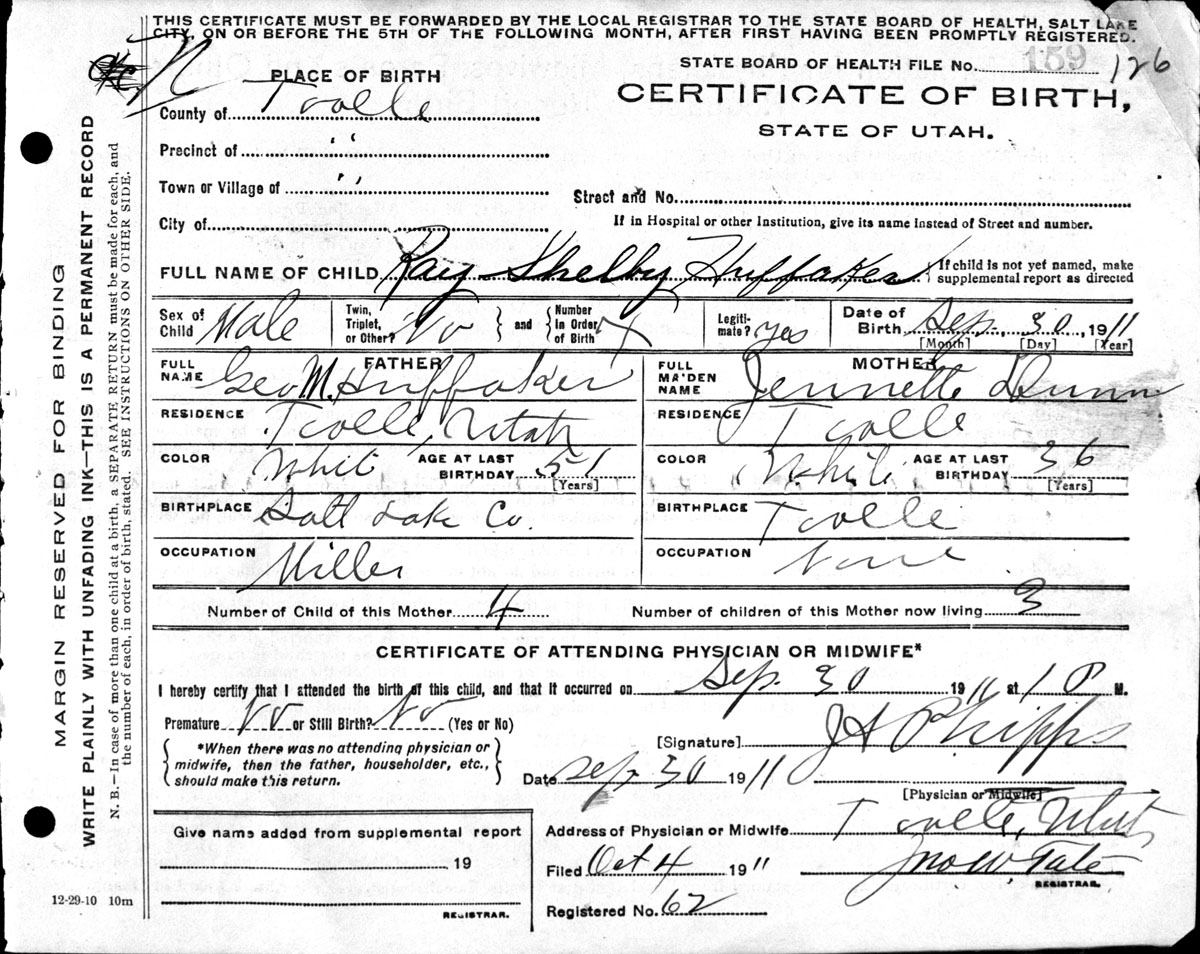 THIS CERTIFICATE MUST BE FORWARDED BY THE LOCAL REGISTRAR TO THE STATE BOARD OF HEALTH, SALT LAKE
CITY, ON OR BEFORE THE 5TH OF THE FOLLOWING MONTH, AFTER FIRST HAVING BEEN PROMPTLY REGISTERED.
STATE BOARD OF HEALTH FILE No. 159 126
PLACE OF BIRTH
CERTIFICATE OF BIRTH,
STATE OF UTAH.
County of Tooele
Precinct of "
Town or Village of "
Street and No.
City of
If in Hospital or other Institution, give its name Instead of Street and number.
FULL NAME OF CHILD Ray Shelby Huffaker { If child is not yet named, make
supplemental report as directed
Sex of Child Male Twin, Triplet, or Other? No } and { Number In Order of Birth Legiti-mate? yes Date of Birth Sep. 30 1911
[Month] [Day] [Year]
FATHER MOTHER
FULL NAME Geo M. Huffaker FULL MAIDEN NAME Jennette Dunn
RESIDENCE Tooele, Utah RESIDENCE Tooele
COLOR Whit AGE AT LAST BIRTHDAY 51 [Years] COLOR White AGE AT LAST BIRTHDAY 36 [Years]
BIRTHPLACE Salt Lake Co. BIRTHPLACE Tooele
OCCUPATION Miller OCCUPATION None
Number of Child of this Mother 4 Number of children of this Mother now living 3
CERTIFICATE OF ATTENDING PHYSICIAN OR MIDWIFE*
I hereby certify that I attended the birth of this child, and that it occurred on Sep. 30 1911 at 1 P M.
Premature No or Still Birth? No (Yes or No)
{ *When there was no attending physician or
midwife, then the father, householder, etc.,
should make this return. }
[Signature] J A Phipps
Date Sep. 30 1911
[Physician or Midwife]
Give name added from supplemental report
19
REGISTRAR.
Address of Physician or Midwife Tooele, Utah
Filed Oct 4 1911 Jno W Tate
REGISTRAR.
Registered No. 62
12-29-10 10m
MARGIN RESERVED FOR BINDING
WRITE PLAINLY WITH UNFADING INK—THIS IS A PERMANENT RECORD
N. B.—In case of more than one child at a birth, a SEPARATE RETURN must be made for each, and
the number of each, in order of birth, stated. SEE INSTRUCTIONS ON OTHER SIDE.